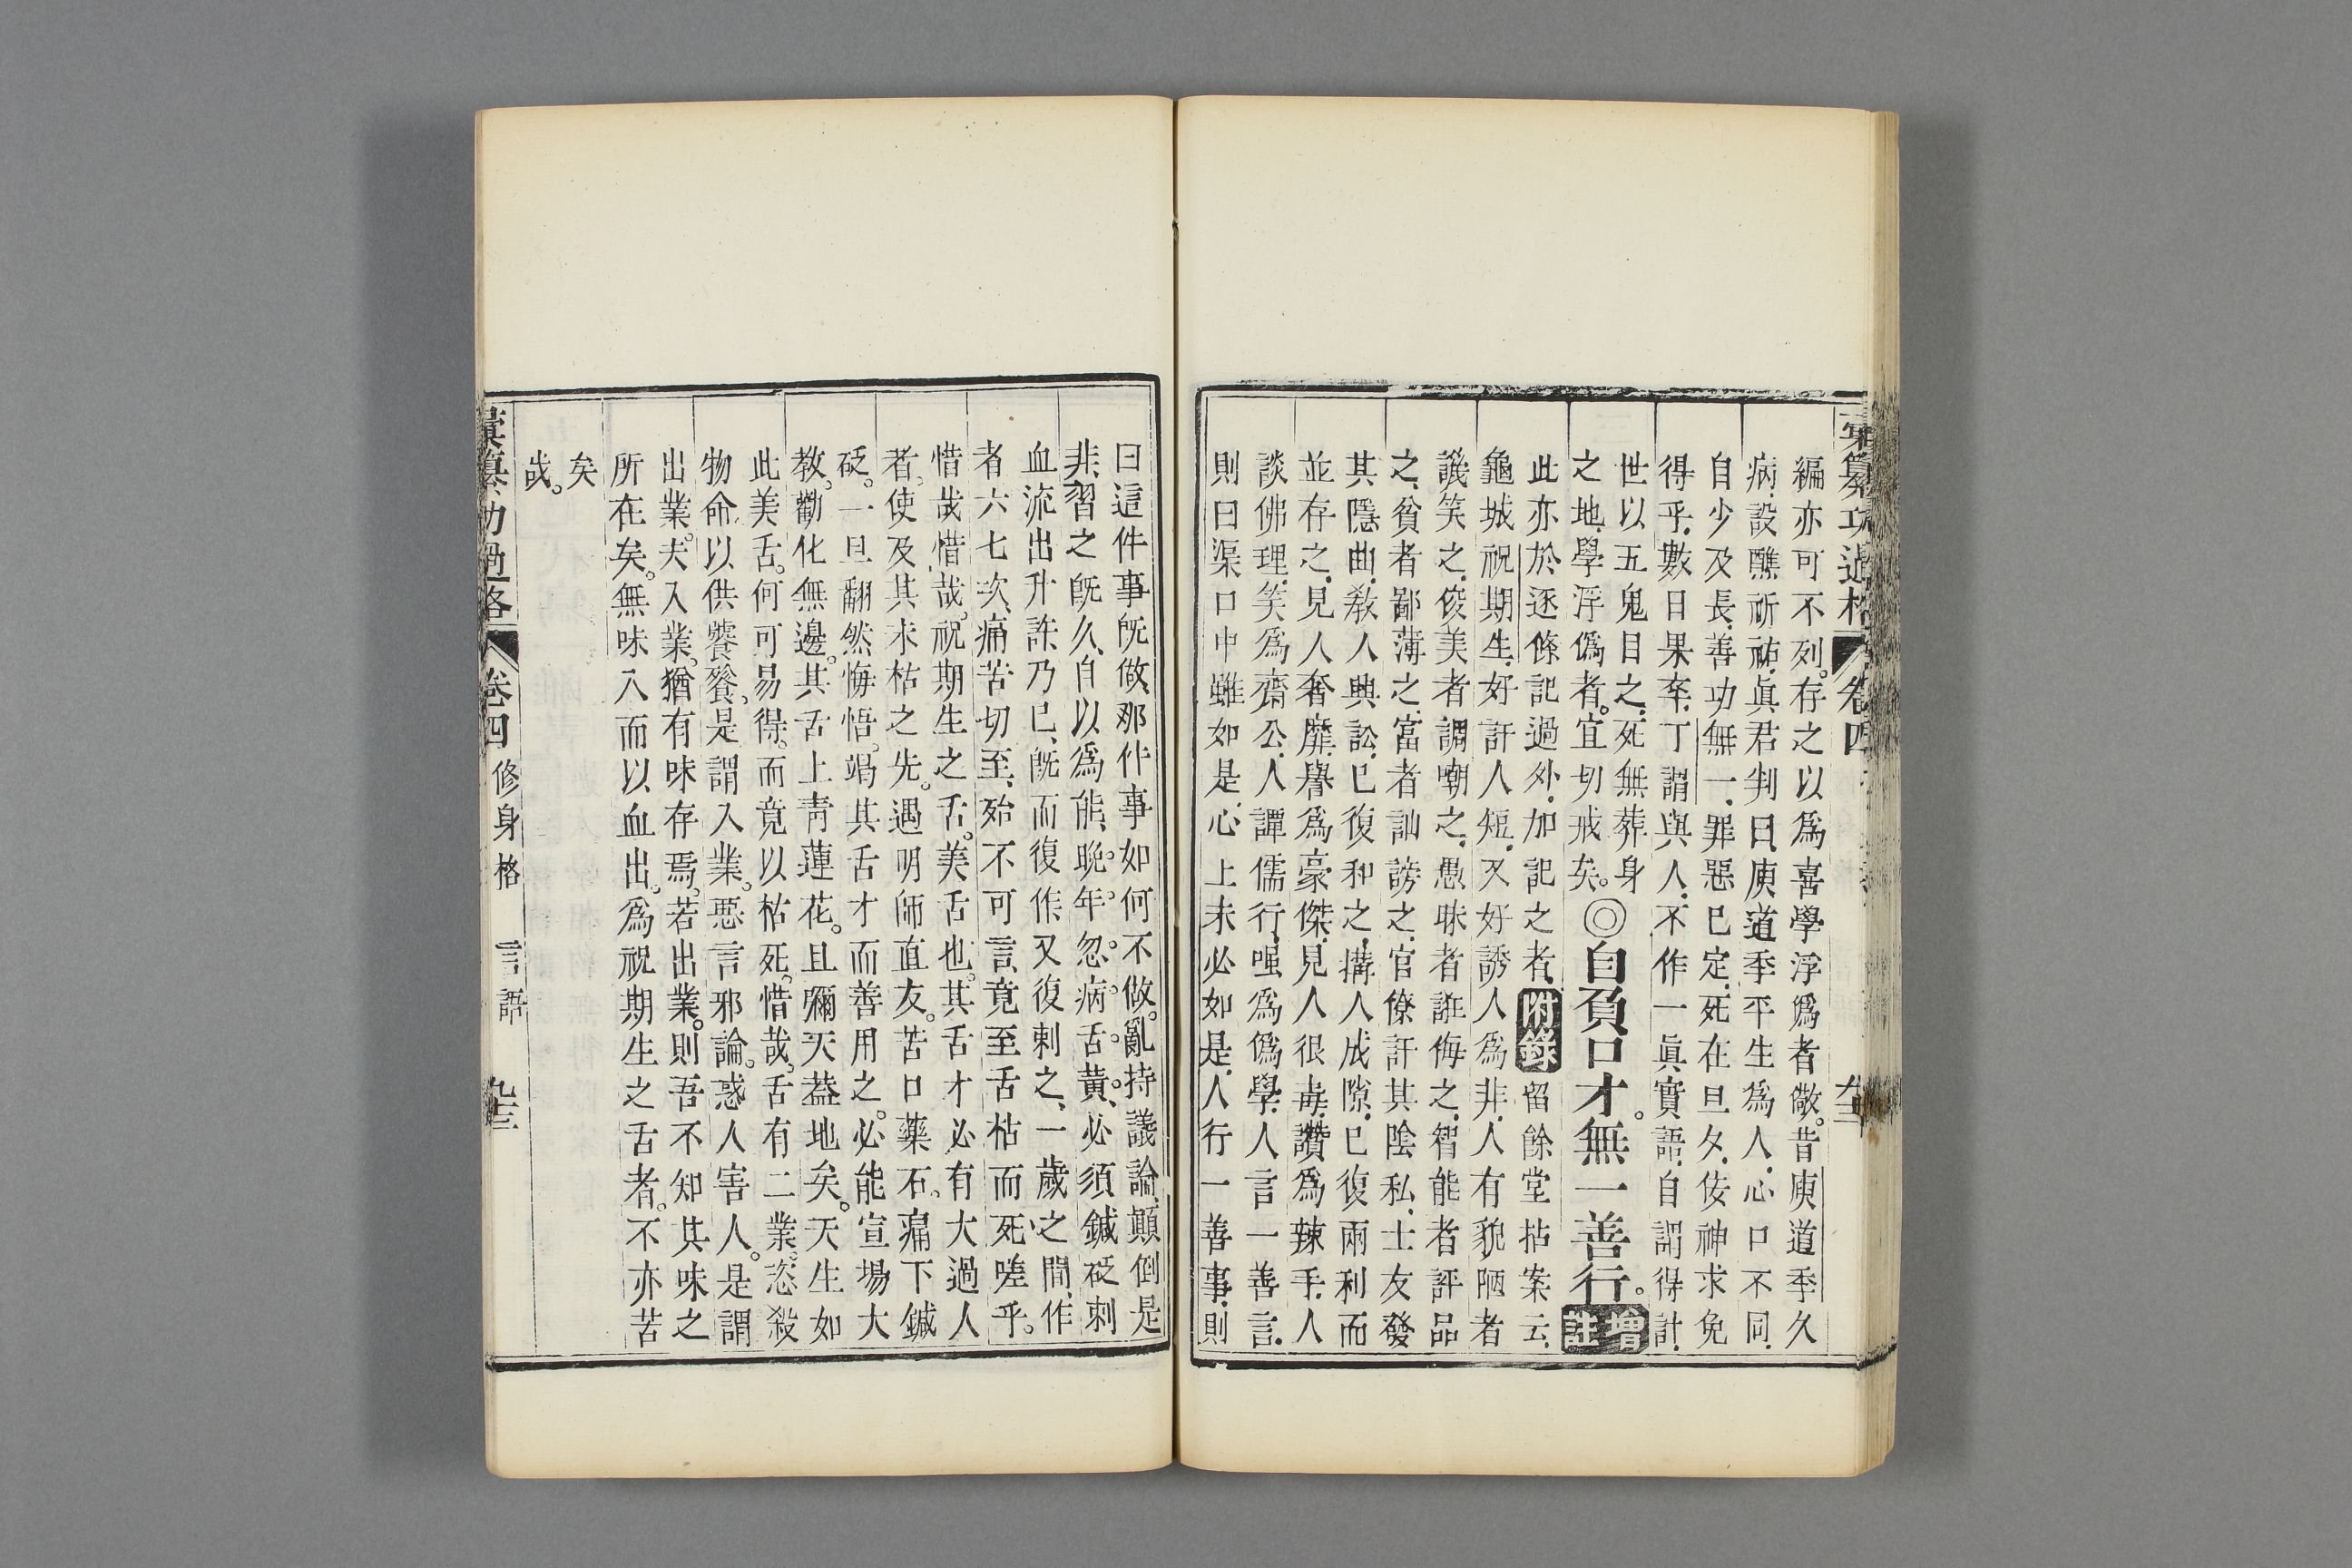 彙纂功過格 卷四
編亦可不列。存之以爲喜學浮僞者儆。昔庾道季久
病、設醮祈祐、眞君判曰、庾道季平生爲人、心口不同、
自少及長、善功無一、罪惡已定、死在旦夕、佞神求免
得乎、數日果卒、丁謂與人、不作一眞實語、自謂得計、
世以五鬼目之、死無葬身
之地、學浮僞者。宜切戒矣。◎自負口才。無一善行。增註
此亦於逐條記過外、加記之者、附錄 留餘堂拈案云、
龜城祝期生、好訐人短、又好誘人爲非、人有貌陋者
譏笑之、俊美者調嘲之、愚昧者誑侮之、智能者評品
之、貧者鄙薄之、富者訕謗之、官僚訐其陰私、士友發
其隱曲、敎人興訟、已復和之、搆人成隙、已復兩利而
並存之、見人奢靡、譽爲豪傑、見人很毒、讚爲辣手、人
談佛理、笑爲齋公、人譚儒行、嗤爲僞學、人言一善言、
則曰渠口中雖如是、心上未必如是、人行一善事、則
曰這件事旣做、那件事如何不做。亂持議論、顚倒是
非、習之旣久、自以爲能、晚年。忽病。舌。黃、必須鍼砭刺
血流出升許乃已、旣而復作又復刺之、一歲之間、作
者六七次、痛苦切至、殆不可言、竟至舌枯而死嗟乎。
惜哉惜哉。祝期生之舌。美舌也。其舌才必有大過人
者。使及其未枯之先。遇明師直友。苦口藥石。痛下鍼
砭。一旦翻然悔悟。竭其舌才而善用之。必能宣揚大
敎。勸化無邊。其舌上靑蓮花。且彌天蓋地矣。天生如
此美舌。何可易得。而竟以枯死。惜哉。舌有二業。恣殺
物命以供饕餮。是謂入業。惡言邪論。惑人害人。是謂
出業。夫入業。猶有味存焉。若出業。則吾不知其味之
所在矣。無味入而以血出。爲祝期生之舌者。不亦苦
矣
哉。
彙纂功過格 卷四 修身格 言語 九三